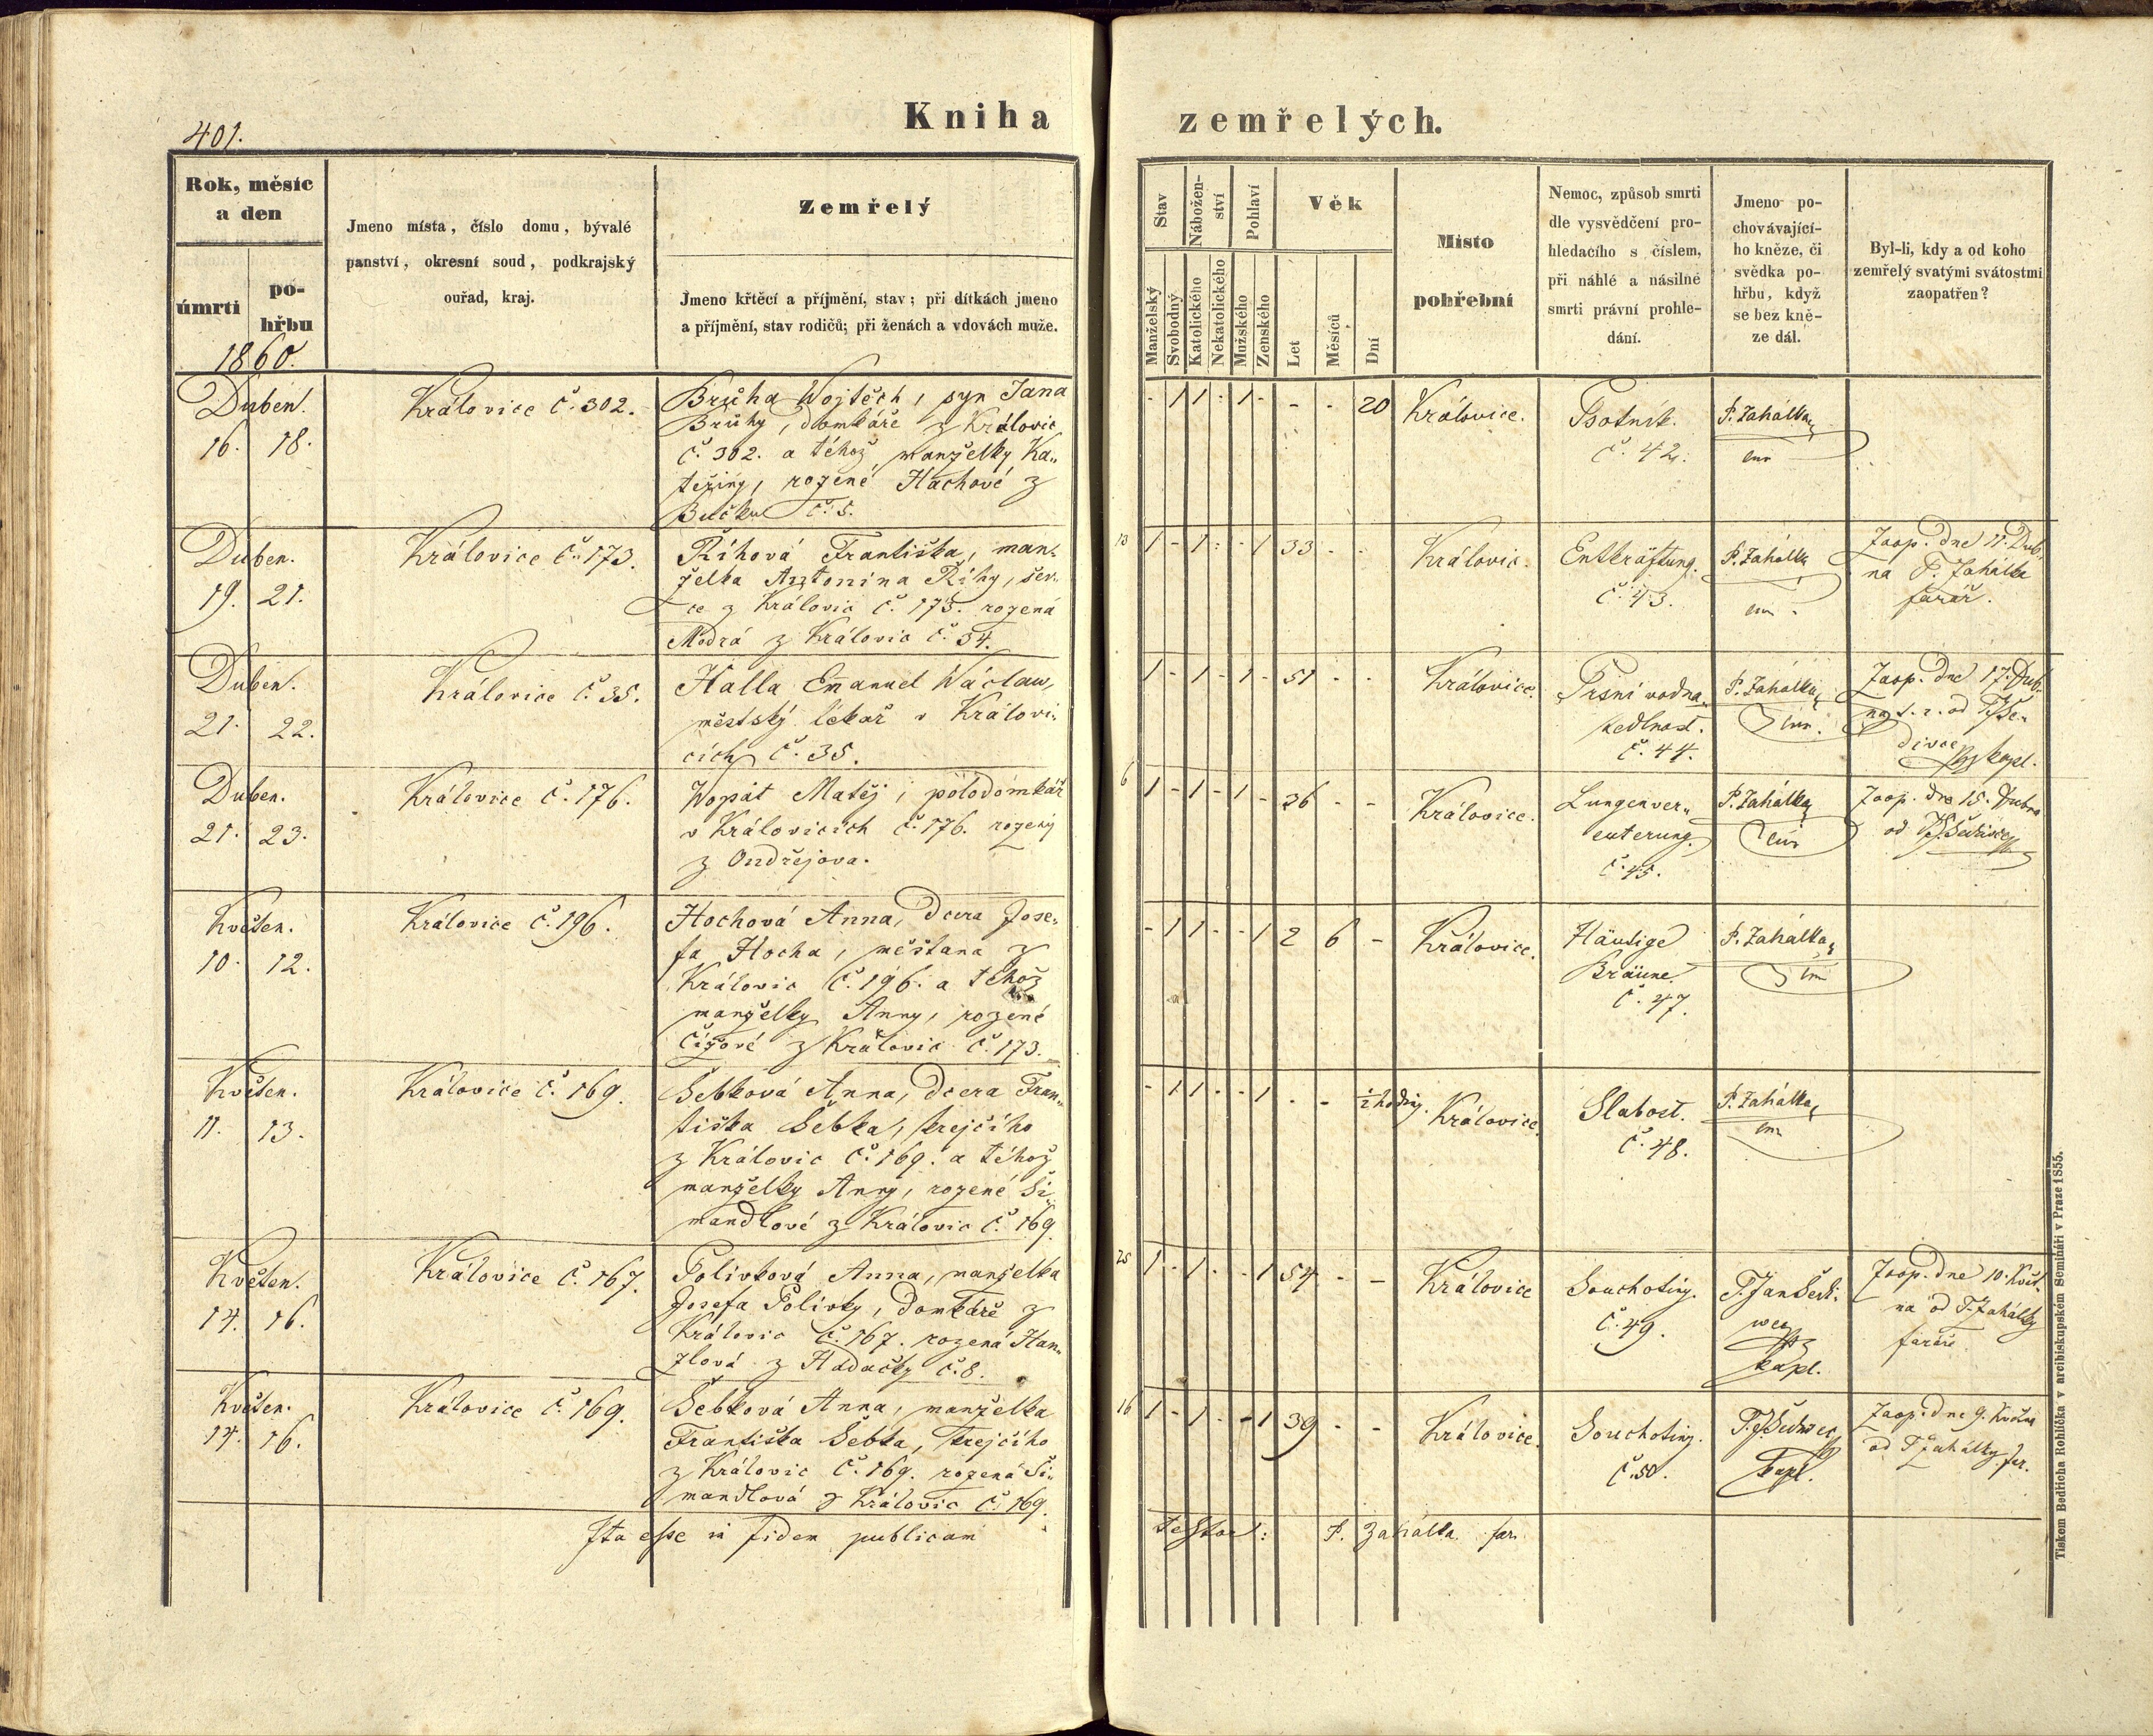 401.
Kniha zemřelých.
Rok, měsíc
a den
úmrtí
po-
hřbu
1860.
Jmeno místa, číslo domu, bývalé
panství, okresní soud, podkrajský
ouřad, kraj.
Zemřelý
Jmeno křtěcí a příjmění, stav; při dítkách jmeno
a příjmění, stav rodičů; při ženách a vdovách muže.
Stav
Manželský
Svobodný
Nábožen-
ství
Katolického
Nekatolického
Pohlaví
Mužského
Ženského
Věk
Let
Měsíců
Dní
Místo
pohřební
Nemoc, způsob smrti
dle vysvědčení pro-
hledacího s číslem,
při náhlé a násilné
smrti právní prohle-
dání.
Jmeno po-
chovávající-
ho kněze, či
svědka po-
hřbu, když
se bez kně-
ze dál.
Byl-li, kdy a od koho
zemřelý svatými svátostmi
zaopatřen?
Duben.
16. 18.
Královice č. 302.
Brůha Wojtěch, syn Jana
Brůhy, domkáře z Královic
č. 302. a téhož manželky Ka„
teřiny, rozené Háchové z
Bučku č. 5.
- 1 1 - 1 - - - 20
Královice.
Psotník.
č. 42.
P. Zahálka
Duben.
19. 21.
Královice č. 173.
Říhová Františka, man„
želka Antonína Říhy, šev„
ce z Královic č. 173. rozená
Modrá z Královic č. 54.
13
1 - 1 - - 1 33 - -
Královic.
Entkräftung.
č. 43.
P. Zahálka
Zaop. dne 11. Dub„
na P. Zahálka
farář.
Duben.
21. 22.
Královice č. 35.
Halla Emanuel Wáclaw,
městský lékař v Královi„
cích č. 35.
1 - 1 - 1 - 51 - -
Královice.
Prsní vodna„
tedlnost.
č. 44.
P. Zahálka
Zaop. dne 17. Dub„
na t. r. od P. J. Še„
divce kapl.
Duben.
21. 23.
Královice č. 176.
Wopat Matěj, polodomkář
v Královicích č. 176. rozený
z Ondřejova.
6
1 - 1 - 1 - 36 - -
Královice.
Lungenver„
euterung.
č. 45.
P. Zahálka
Zaop. dne 15. Dubna
od P. J. Šedivce
Květen.
10. 12.
Královice č. 196.
Hochová Anna, dcera Jose„
fa Hocha, měšťana z
Královic č. 196. a téhož
manželky Anny, rozené
Čížové z Královic č. 173.
- 1 1 - - 1 2 6 -
Královice.
Häutige
Bräune.
č. 47.
P. Zahálka
Květen.
11. 13.
Královice č. 169.
Šebková Anna, dcera Fran„
tiška Šebka, krejčího
z Královic č. 169. a téhož
manželky Anny, rozené Ši„
mandlové z Královic č. 169.
- 1 1 - - 1 - - ½ hodiny.
Královice.
Slabost.
č. 48.
P. Zahálka
Květen.
14. 16.
Královice č. 167.
Polívková Anna, manželka
Josefa Polívky, domkáře z
Královic č. 167. rozená Han„
zlová z Hadačky č. 8.
25
1 - 1 - - 1 54 - -
Královice
Souchotiny.
č. 49.
P. Jan Šedi„
wec
kapl.
Zaop. dne 10. Květ„
na od P. Zahálky
faráře
Květen.
14. 16.
Královice č. 169.
Šebková Anna, manželka
Františka Šebka, krejčího
z Královic č. 169. rozená Ši„
mandlová z Královic č. 169.
16
1 - 1 - - 1 39 - -
Královice.
Souchotiny.
č. 50.
P. J. Šedivec
kapl.
Zaop. dne 9. Května
od P. Zahálky far.
Ita esse in fidem publicam testor: P. Zahálka far.
Tiskem Bedřicha Rohlíčka v arcibiskupském Semináři v Praze 1855.